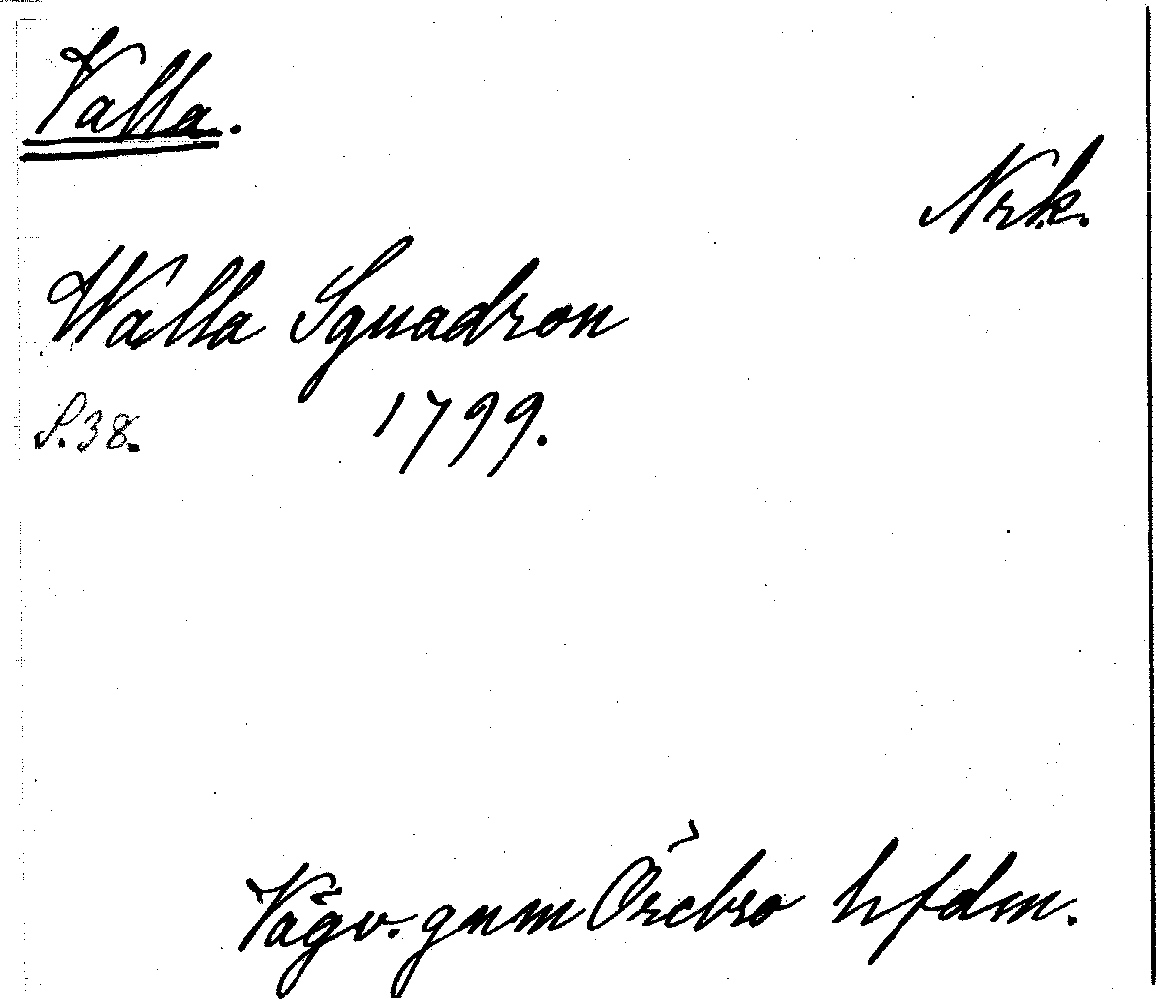 Valla.
Nrk.
Walla Squadron
S. 38. 1799.
Vägv. gnm Örebro hfdm.